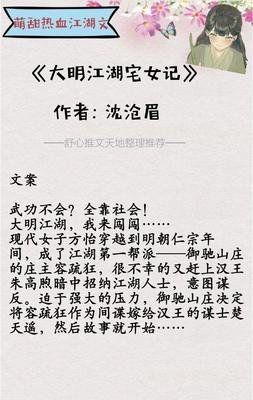 萌甜热血江湖文
《大明江湖宅女记》
作者：沈沧眉
——舒心推文天地整理推荐——
文案
武功不会？全靠社会！
大明江湖，我来闯闯……
现代女子方怡穿越到明朝仁宗年
间，成了江湖第一帮派——御驰山庄
的庄主容疏狂，很不幸的又赶上汉王
朱高煦暗中招纳江湖人士，意图谋
反。迫于强大的压力，御驰山庄决定
将容疏狂作为间谍嫁给汉王的谋士楚
天遥，然后故事就开始……